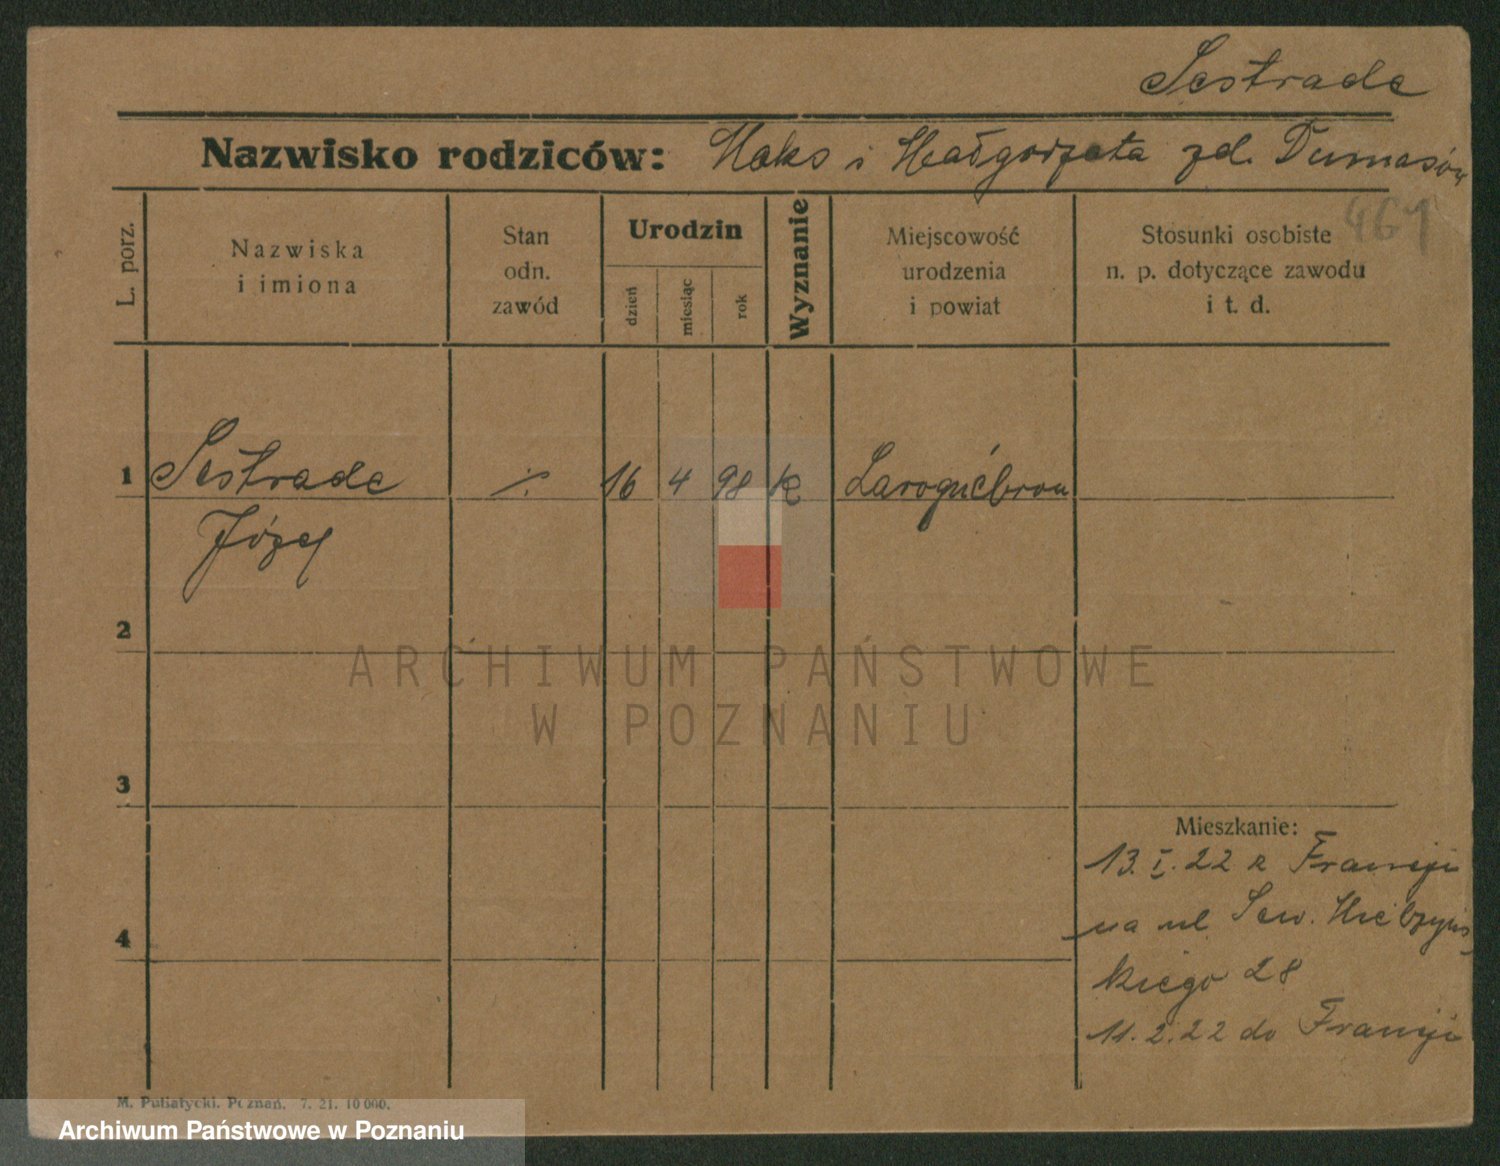 Lestrade
Nazwisko rodziców: Maks i Małgorzata zd. Dumasów
461
L. porz.
Nazwiska
i imiona
Stan
odn.
zawód
Urodzin
dzień
miesiąc
rok
Wyznanie
Miejscowość
urodzenia
i powiat
Stosunki osobiste
n. p. dotyczące zawodu
i t. d.
1 Lestrade ./. 16 4 98 k Laroquébrou
Józef
2
ARCHIWUM PAŃSTWOWE
W POZNANIU
3
Mieszkanie:
13. I. 22 z Francji
na ul Sew. Mielżyńs
4
kiego 28
11. 2. 22 do Francji
M. Putiatycki. Poznań. 7. 21. 10 000.
Archiwum Państwowe w Poznaniu